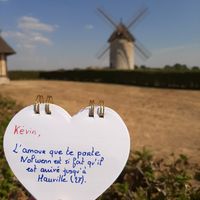 Kévin,
L'amour que te porte
Nolwenn est si fort qu'il
est arrivé jusqu'à
Hauville (27).